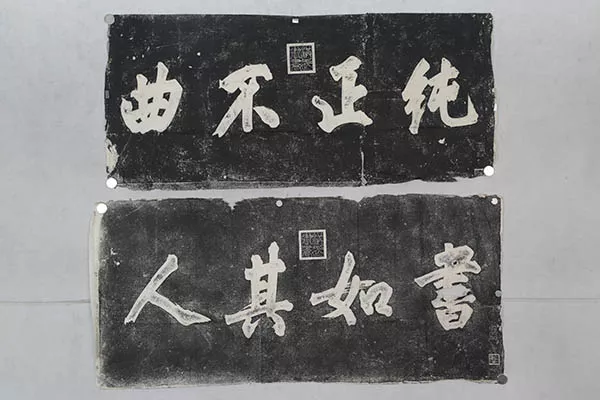 纯正不曲
書如其人